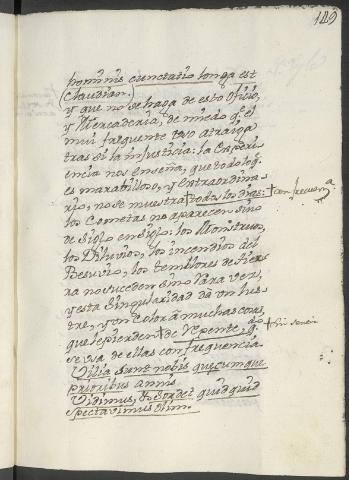 149
hominis cunctatio longa est
(Claudian.)
y que no se haga de esto Oficio,
y Mercaderia, de miedo q. el
mui freqüente uso atraiga
tras si la injusticia: la Experi-
encia nos enseña, que todo lo q.
es marabilloso, y extraordina-
rio, no se muestra todos los dias: + con frequen.a
los Cometas no aparecen sino
de Siglo en Siglo: los Monstruos,
los Diluvios, los incendios del
Besuvio, los temblores de tier-
ra no suceden sino rara vez,
y esta Singularidad dà un lus-
tre, y un Color à muchas cosas,
que le pierden + de repente, q.do + sin
se usa de ellas con frequencia.
Vilia sunt nobis quæcumque
prioribus annis
Vidimus, & sordet quidquid
spectavimus olim.